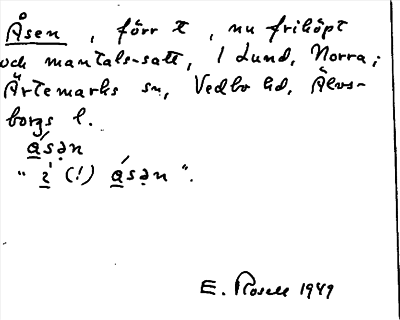 Åsen , förr t , nu friköpt
och mantals-satt, 1 Lund, Norra;
Ärtemarks sn, Vedbo hd, Älvs-
borgs l.
ásən
" i (!) ásən ".
E. Rosell 1949